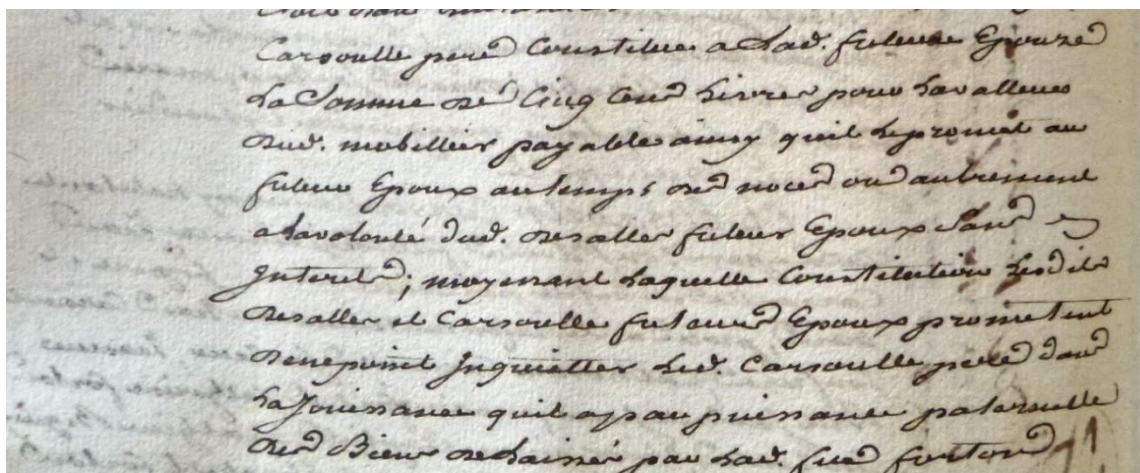 Carsoulle pere Constitue a Lad. future Epouze
La Somme de Cinq Cens Livres pour La valleur
dud. mobillier payable ainsy quil Le promet au
futeur Epoux au temps des noces ou autrement
a La volonté dud. Desalles futeur Epoux Sans
Interets; moyenant Laquelle Constitution Lesdits
Desalles et Carsoulle futeurs Epoux prometent
de ne point Inquietter Led. Carsoulle pere dans
La Jouissance quil a par puissance paternelle
des Biens de Laissés par Lad. fue